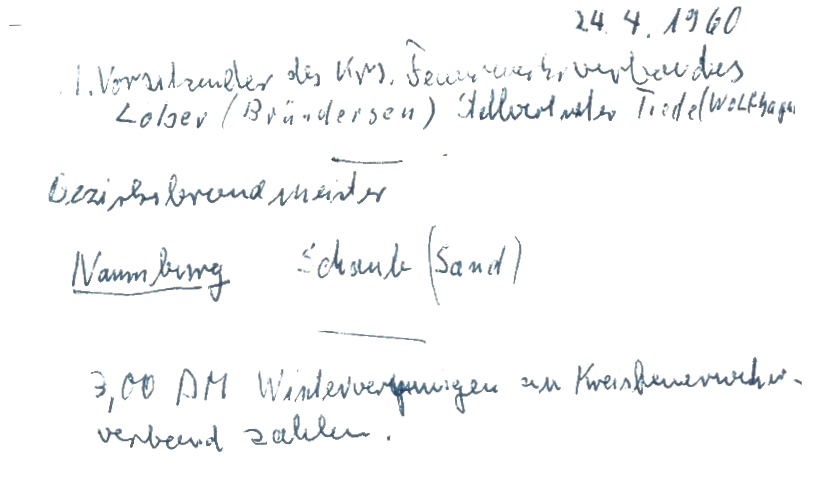 24.4.1960
1. Vorsitzender des Krs. Feuerwehrverbandes
Löber (Bründersen) Stellvertreter Tiede (Wolfhagen
Bezirksbrandmeister
Naumburg Schaub (Sand)
3,00 DM Wintervergnügen an Kreisfeuerwehr-
verband zahlen.